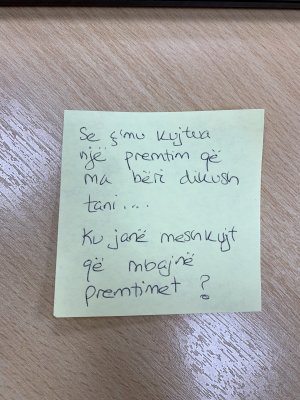 Se ç'mu kujtua
një premtim që
ma bëri dikush
tani....
Ku janë meshkujt
që mbajnë
premtimet?